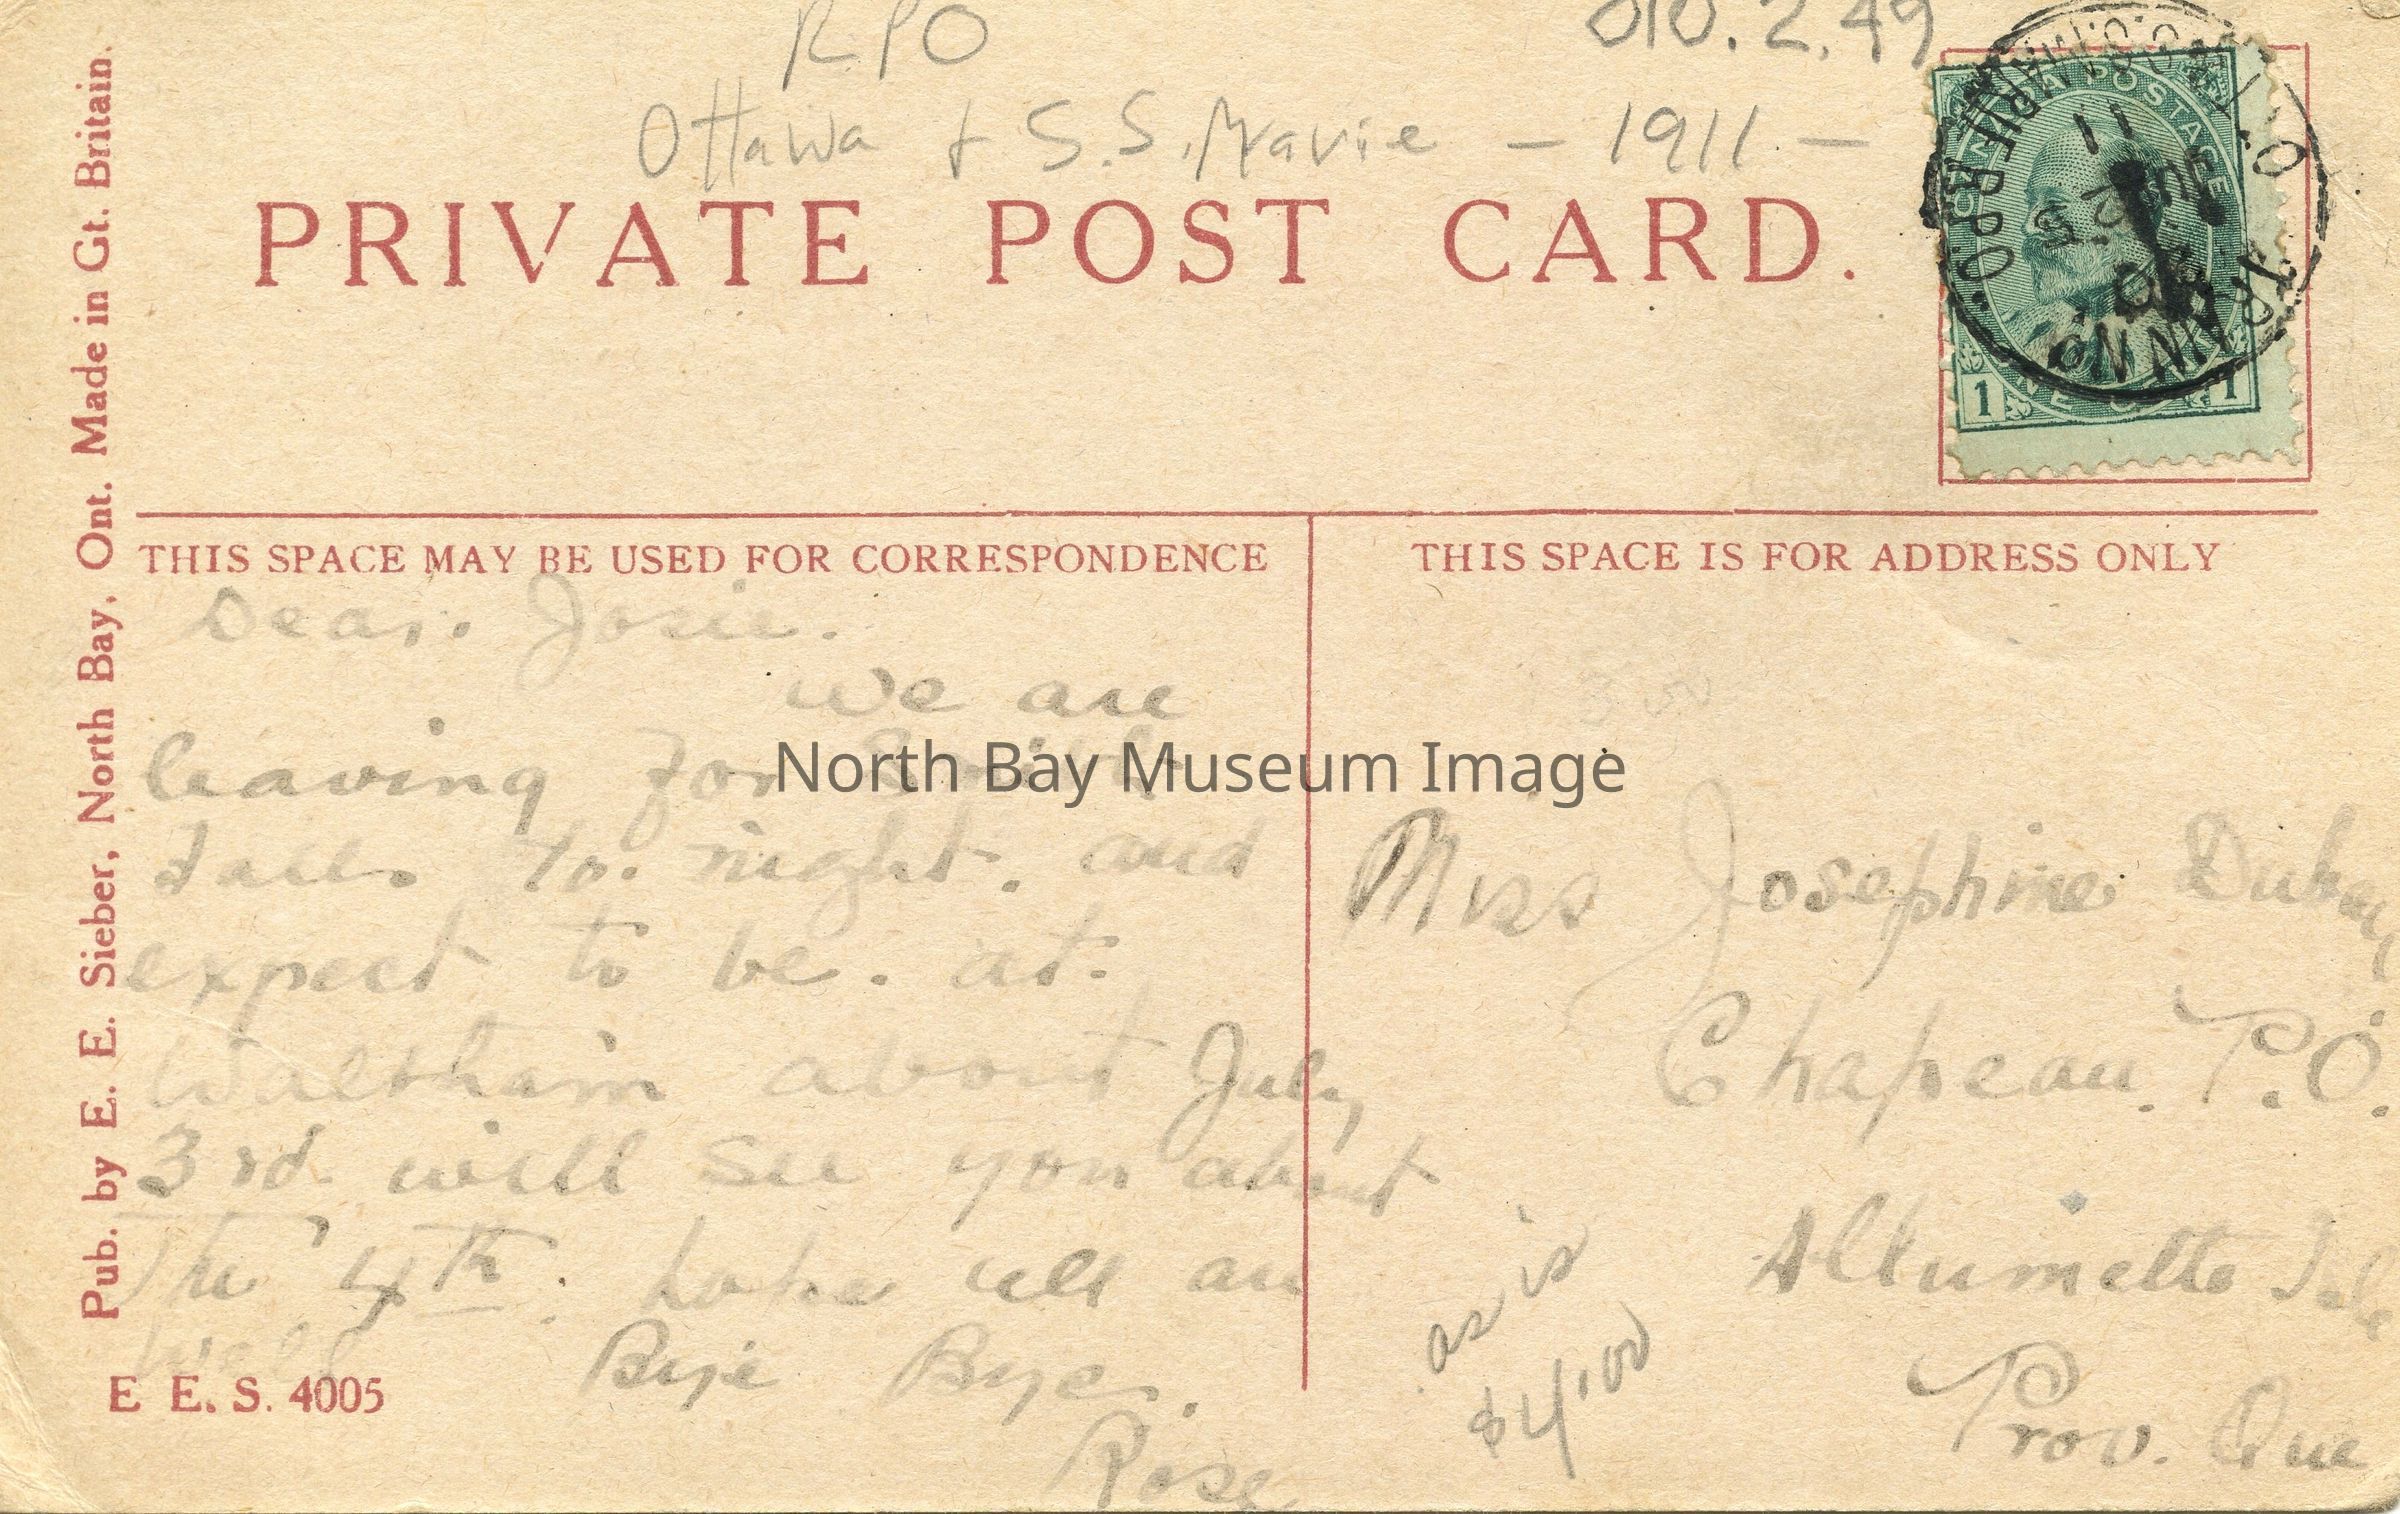 RPO
010.2.49
Ottawa & S.S. Marie - 1911 -
PRIVATE POST CARD.
CANADA POSTAGE
11
JU 25
MARIE R.P.O.
1 1
Pub. by E. E. Sieber, North Bay, Ont. Made in Gt. Britain.
THIS SPACE MAY BE USED FOR CORRESPONDENCE
Dear. Josie.
we are
leaving for
Falls to. night. and
expect to be. at.
Waltham about July
3rd. will see you about
The 4th. hope all are
well
Bye Bye.
Rose
E. E. S. 4005
THIS SPACE IS FOR ADDRESS ONLY
300
Miss Josephine
Chapeau. P.O.
Allumette Isle
Prov. Que
as is
$4.00
North Bay Museum Image